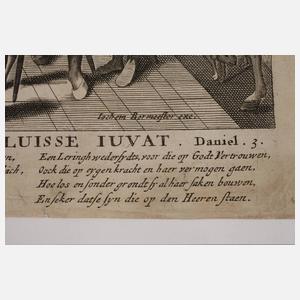 Iochem Bormeester exc.
LUISSE IUVAT. Daniel. 3.
en, Een Leringh wedersydts, voor die op Godt Vertrouwen,
Oock die op eygen kracht en haer vermogen gaen,
Hoe los en sonder grondt sy al haer saken bouwen,
En seker datse syn die op den Heeren staen.